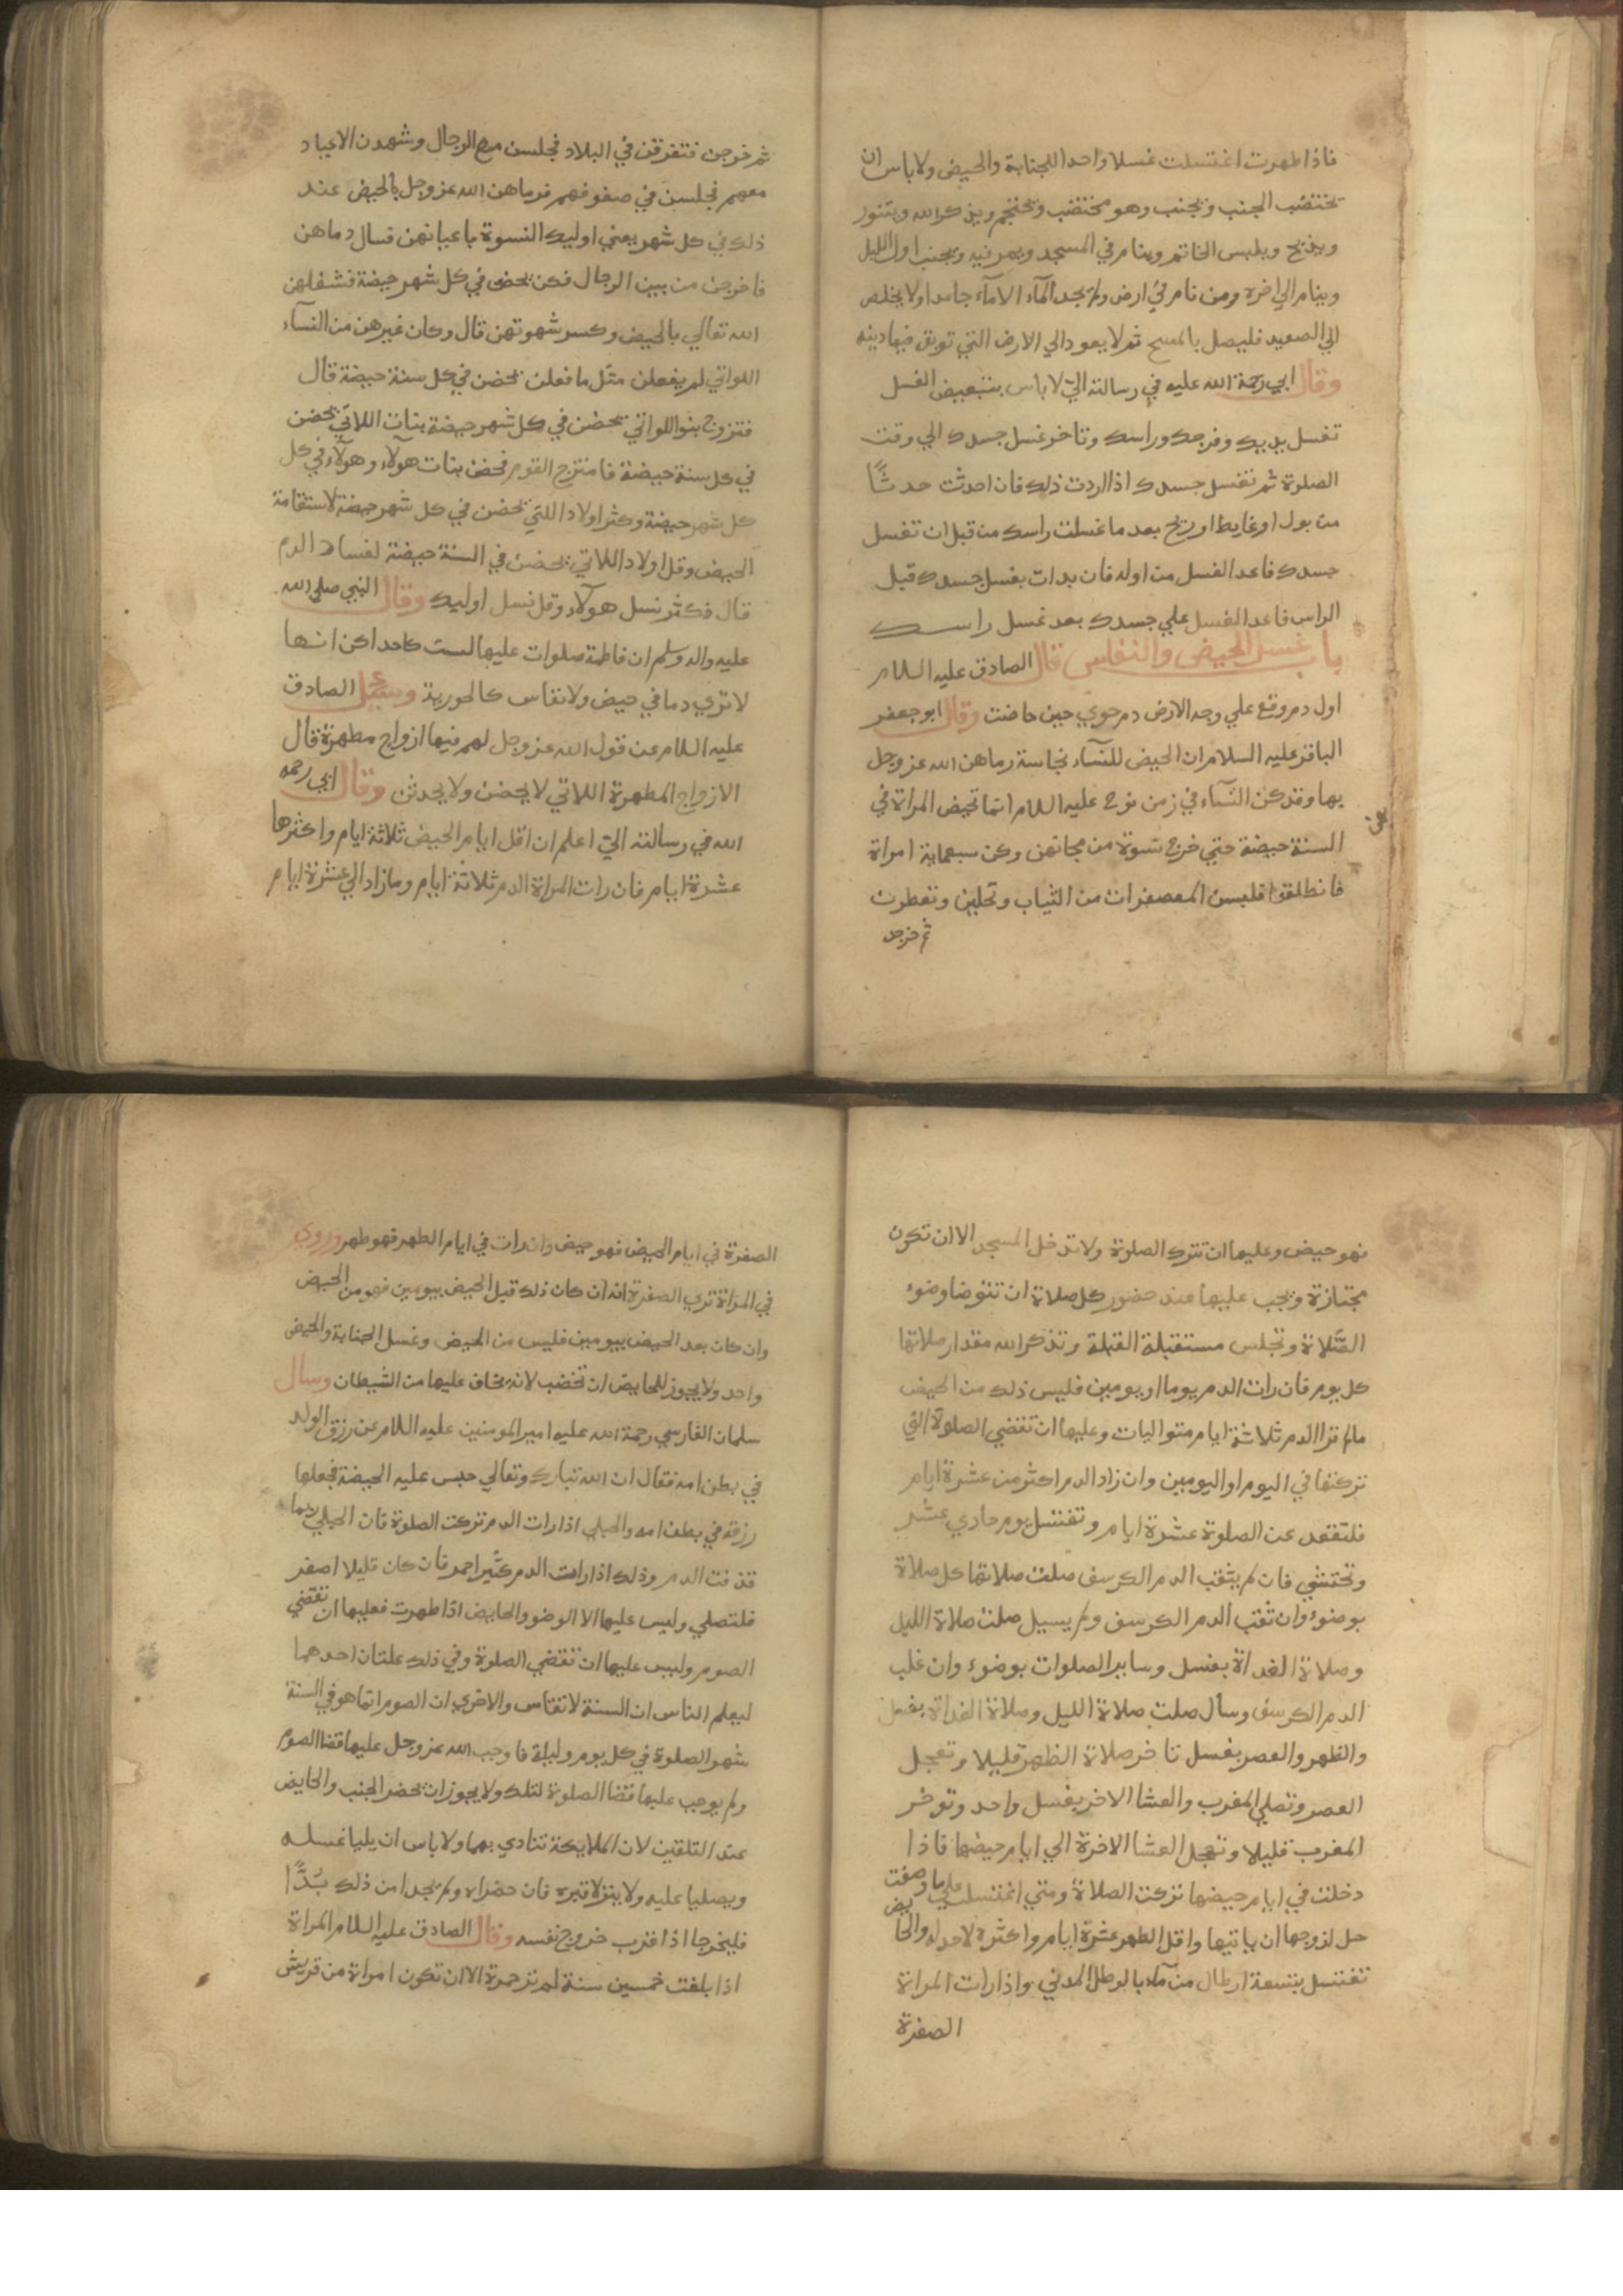 فاذا طهرت اغتسلت غسلا واحدا للجنابة والحيض ولا باس ان
تختضب الجنب ويجنب وهو مختضب ويحتجم ويذكر الله ويتنور
ويذبح ويلبس الخاتم وينام في المسجد ويمر فيه ويجنب اول الليل
وينام الي اخره ومن نام في ارض ولم يجد المآء الا مآء جامدا ولا يخلص
الي الصعيد فليصل بالمسح ثم لا يعود الي الارض التي توبق فيها دينه
وقال ابي رحمة الله عليه في رسالته الي لا باس بتبعيض الغسل
تغسل يديك وفرجك وراسك وتاخر غسل جسدك الي وقت
الصلوة ثم تغسل جسدك اذا اردت ذلك فان احدثت حدثًا
من بول او غايط او ريح بعد ما غسلت راسك من قبل ان تغسل
جسدك فاعد الغسل من اوله فان بدات بغسل جسدك قبل
الراس فاعد الغسل علي جسدك بعد غسل راسك
باب غسل الحيض والنفاس قال الصادق عليه السلام
اول دم وقع علي وجه الارض دم حوي حين حاضت وقال ابو جعفر
الباقر عليه السلام ان الحيض للنسآء نجاسة رماهن الله عز وجل
بها وقد كن النسآء في زمن نوح عليه السلام انما تحيض المراة في
السنة حيضة حتي خرج نسوة من مجانهن وكن سبعماية امراة
فانطلقوا فلبسن المعصفرات من الثياب وتحلين وتعطرن
ثم خرجن
ثم خرجن فتفرقن في البلاد فجلسن مع الرجال وشهدن الاعياد
معهم فجلسن في صفوفهم فرماهن الله عز وجل بالحيض عند
ذلك في كل شهر يعني اوليك النسوة باعيانهن فسال دماهن
فاخرجن من بين الرجال فكن يحضن في كل شهر حيضة فشغلهن
الله تعالي بالحيض وكسر شهوتهن قال وكان غيرهن من النسآء
اللواتي لم يفعلن مثل ما فعلن يحضن في كل سنة حيضة قال
فتزوج بنو اللواتي يحضن في كل شهر حيضة بنات اللاتي يحضن
في كل سنة حيضة فامتزج القوم فحضن بنات هولآء وهولآء في كل
كل شهر حيضة وكثر اولاد اللتي يحضن في كل شهر حيضة لاستقامة
الحيض وقل اولاد اللاتي يحضن في السنة حيضة لفساد الدم
قال فكثر نسل هولآء وقل نسل اوليك وقال النبي صلي الله
عليه واله وسلم ان فاطمة صلوات عليها لست كاحداكن انها
لا تري دما في حيض ولا نفاس كالحورية وسئل الصادق
عليه السلام عن قول الله عز وجل لهم فيها ازواج مطهرة قال
الازواج المطهرة اللاتي لا يحضن ولا يحدثن وقال ابي رحمه
الله في رسالته الي اعلم ان اقل ايام الحيض ثلاثة ايام واكثرها
عشرة ايام فان رات المراة الدم ثلاثة ايام وما زاد الي عشرة ايام
فهو حيض وعليها ان تترك الصلوة ولا تدخل المسجد الا ان تكون
مجتازة ويجب عليها عند حضور كل صلاة ان تتوضا وضوء
الصّلاة وتجلس مستقبلة القبلة وتذكر الله مقدار صلاتها
كل يوم فان رات الدم يوما او يومين فليس ذلك من الحيض
ما لم ترا الدم ثلاثة ايام متواليات وعليها ان تقضي الصلوة التي
تركتها في اليوم او اليومين وان زاد الدم اكثر من عشرة ايام
فلتقعد عن الصلوة عشرة ايام وتغتسل يوم حادي عشر
وتحتشي فان لم يثقب الدم الكرسف صلت صلاتها كل صلاة
بوضوء وان ثقب الدم الكرسف ولم يسيل صلت صلاة الليل
وصلاة الغداة بغسل وساير الصلوات بوضوء وان غلب
الدم الكرسف وسال صلت صلاة الليل وصلاة الغداة بغسل
والظهر والعصر بغسل تاخر صلاة الظهر قليلا وتعجل
العصر وتصلي المغرب والعشا الاخر بغسل واحد وتوخر
المغرب قليلا وتعجل العشا الاخرة الي ايام حيضها فاذا
دخلت في ايام حيضها تركت الصلاة ومتي اغتسلت علي ما وصفت
حل لزوجها ان ياتيها واقل الطهر عشرة ايام واكثره لا حد له والحايض
تغتسل بتسعة ارطال من مآء بالرطل المدني واذا رات المراة
الصفرة
الصفرة في ايام الحيض فهو حيض وان رات في ايام الطهر فهو طهر وروي
في المراة تري الصفرة انه ان كان ذلك قبل الحيض بيومين فهو من الحيض
وان كان بعد الحيض بيومين فليس من الحيض وغسل الجنابة والحيض
واحد ولا يجوز للحايض ان تخضب لانه يخاف عليها من الشيطان وسال
سلمان الفارسي رحمة الله عليه امير المومنين عليه السلام عن رزق الولد
في بطن امه فقال ان الله تبارك وتعالي حبس عليه الحيضة فجعلها
رزقه في بطن امه والحبلي اذا رات الدم تركت الصلوة فان الحبلي ربما
قذفت الدم وذلك اذا رات الدم كثير احمر فان كان قليلا اصفر
فلتصلي وليس عليها الا الوضو والحايض اذا طهرت فعليها ان تقضي
الصوم وليس عليها ان تقضي الصلوة وفي ذلك علتان احدهما
ليعلم الناس ان السنة لا تقاس والاخري ان الصوم انما هو في السنة
شهر الصلوة في كل يوم وليلة فاوجب الله عز وجل عليها قضا الصوم
ولم يوجب عليها قضا الصلوة لتلك ولا يجوز ان يحضر الجنب والحايض
عند التلقين لان الملايكة تتنادي بهما ولا باس ان يليا غسله
ويصليا عليه ولا ينزلا قبره فان حضراه ولم يجدا من ذلك بُدًّا
فليخرجا اذا قرب خروج نفسه وقال الصادق عليه السلام المراة
اذا بلغت خمسين سنة لم تر حمرة الا ان تكون امراة من قريش